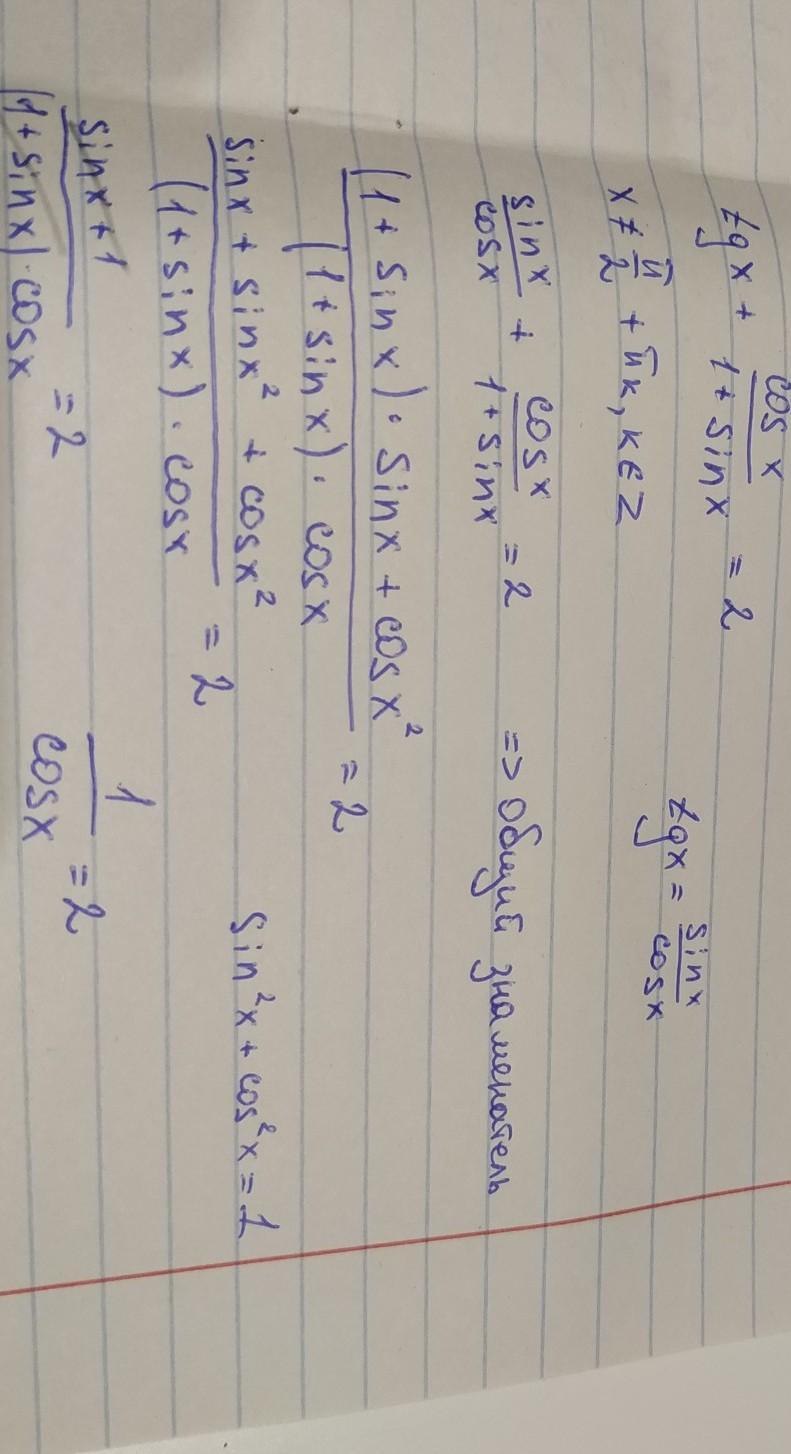 tg x + cos x / 1 + sin x = 2
x ≠ π/2 + πk, k ∈ Z
tg x = sin x / cos x
sin x / cos x + cos x / 1 + sin x = 2 => Общий знаменатель
(1 + sin x) · sin x + cos x² / (1 + sin x) · cos x = 2
sin x + sin x² + cos x² / (1 + sin x) · cos x = 2
sin² x + cos² x = 1
sin x + 1 / (1 + sin x) · cos x = 2
1 / cos x = 2